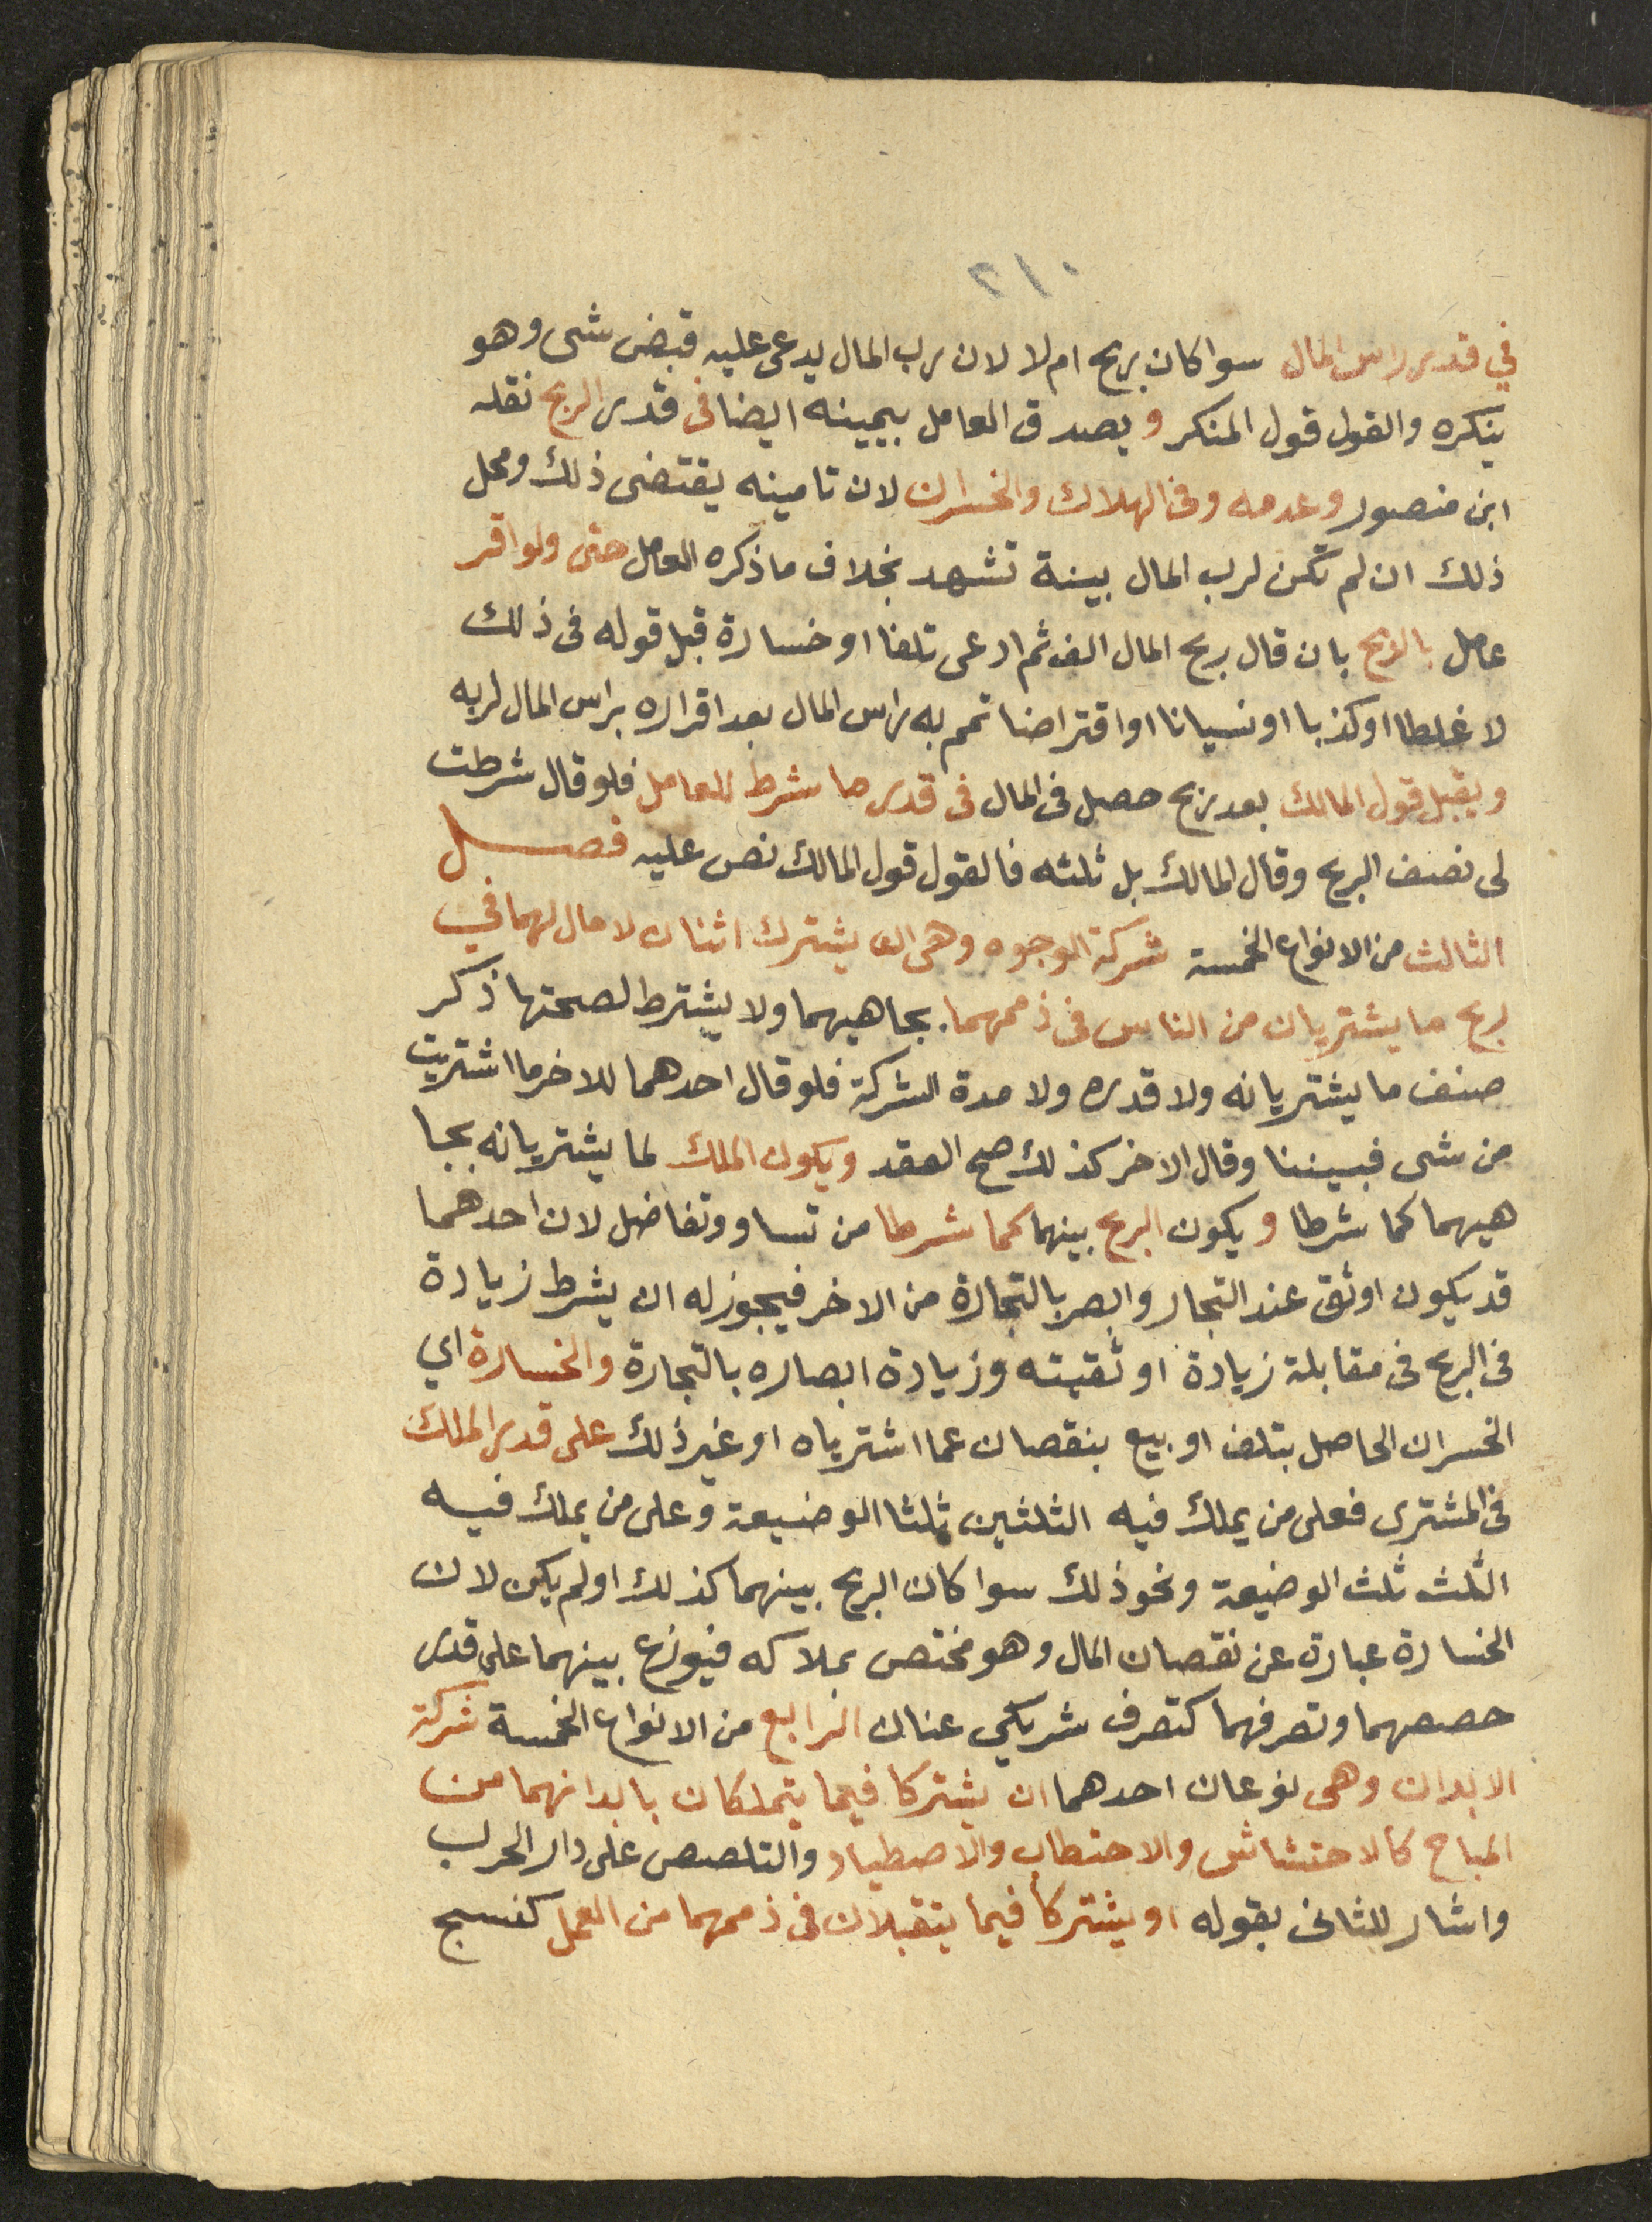 ٢١٠
في قدر راس المال سوا كان ربح ام لا لان رب المال يدعى عليه قبض شى وهو
ينكره والقول قول المنكر ويصدق العامل بيمينه ايضا فى قدر الربح نقله
ابن منصور وعدمه وفى الهلاك والخسران لان تامينه يقتضى ذلك ومحل
ذلك ان لم تكن لرب المال بينة تشهد بخلاف ما ذكره العامل حتى ولو اقر
عامل بالربح بان قال ربح المال الف ثم ادعى تلفا او خسارة قبل قوله فى ذلك
لا غلطا او كذبا او نسيانا او اقتراضا تمم به راس المال بعد اقراره براس المال لربه
ويقبل قول المالك بعد ربح حصل فى المال فى قدر ما شرط للعامل فلو قال شرطت
لى نصف الربح وقال المالك بل ثلثه فالقول قول المالك نص عليه فصل
الثالث من الانواع الخمسة شركة الوجوه وهى ان يشترك اثنان لا مال لهما في
ربح ما يشتريان من الناس فى ذممهما بجاهيهما ولا يشترط لصحتها ذكر
صنف ما يشتريانه ولا قدره ولا مدة الشركة فلو قال احدهما للاخر ما اشتريت
من شى فبيننا وقال الاخر كذلك صح العقد ويكون الملك لما يشتريانه بجا
هيهما كما شرطا ويكون الربح بينهما كما شرطا من تساو وتفاضل لان احدهما
قد يكون اوثق عند التجار وابصر بالتجارة من الاخر فيجوز له ان يشرط زيادة
فى الربح فى مقابلة زيادة اوثقيته وزيادة ابصاره بالتجارة والخسارة اي
الخسران الحاصل بتلف او بيع بنقصان عما اشترياه او غير ذلك على قدر الملك
فى المشترى فعلى من يملك فيه الثلثين ثلثا الوضيعة وعلى من يملك فيه
الثلث ثلث الوضيعة ونحو ذلك سوا كان الربح بينهما كذلك او لم يكن لان
الخسارة عبارة عن نقصان المال وهو مختص بملاكه فيوزع بينهما على قدر
حصصهما وتصرفهما كتصرف شريكي عنان الرابع من الانواع الخمسة شركة
الابدان وهى نوعان احدهما ان يشتركا فيما يتملكان بابدانهما من
المباح كالاحتشاش والاحتطاب والاصطياد والتلصص على دار الحرب
واشار للثانى بقوله او يشتركا فيما يتقبلان فى ذممهما من العمل كنسج